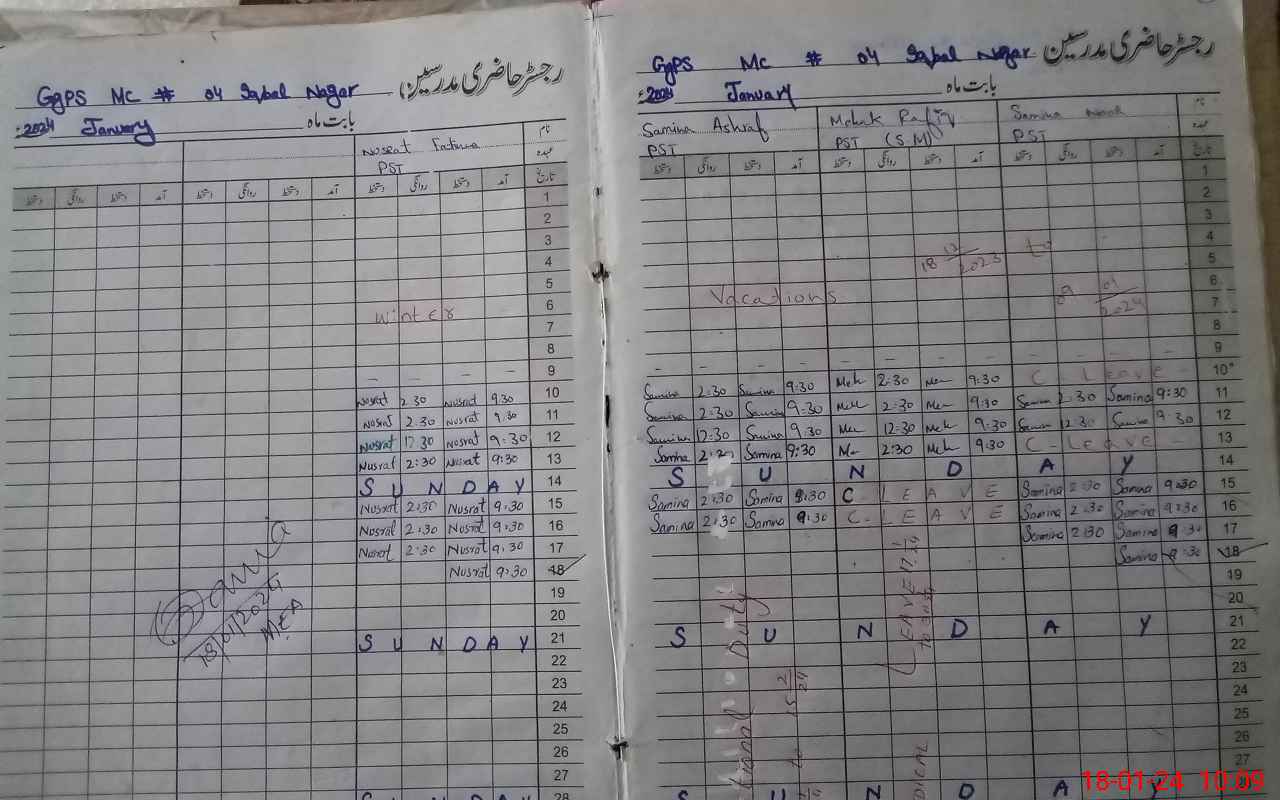 GGPS MC # 04 Iqbal Nagar رجسٹر حاضری مدرسین
2024ء January بابت ماہ
Nusrat Fatima نام
PST عہدہ
دستخط روانگی دستخط آمد دستخط روانگی دستخط آمد دستخط روانگی دستخط آمد تاریخ
1
2
3
4
5
winter 6
7
8
- - - - 9
Nusrat 2.30 Nusrat 9.30 10
Nusrat 2.30 Nusrat 9.30 11
Nusrat 12.30 Nusrat 9.30 12
Nusrat 2:30 Nusrat 9:30 13
S U N D A Y 14
Nusrat 2:30 Nusrat 9.30 15
Nusrat 2:30 Nusrat 9.30 16
Nusrat 2:30 Nusrat 9.30 17
Nusrat 9.30 18
19
20
S U N D A Y 21
22
23
24
25
26
27
S U N D A Y 28
18/01/2024
MEA
GGPS MC # 04 Iqbal Nagar رجسٹر حاضری مدرسین
2024ء January بابت ماہ
Samina Ashraf Mehak Rafiq Samina نام
PST PST (SM) PST عہدہ
دستخط روانگی دستخط آمد دستخط روانگی دستخط آمد دستخط روانگی دستخط آمد تاریخ
1
2
3
4
18 12/2023 to 5
6
Vacations 09 01/2024 7
8
- - - - - - - - - - - - 9
Samina 2:30 Samina 9:30 Meh 2:30 Me 9:30 C. Leave - 10
Samina 2:30 Samina 9:30 Meh 2:30 Me 9:30 Samina 2:30 Samina 9:30 11
Samina 12:30 Samina 9:30 Me 12:30 Meh 9:30 Samina 12:30 Samina 9:30 12
Samina 2:30 Samina 9:30 Me 2:30 Meh 9:30 C-Leave - 13
S U N D A Y 14
Samina 2:30 Samina 9:30 C L E A V E Samina 2:30 Samina 9:30 15
Samina 2:30 Samina 9:30 C. L E A V E Samina 2:30 Samina 9:30 16
Samina 2:30 Samina 9:30 17
Samina 9:30 18
19
20
S U N D A Y 21
22
23
24
25
26
27
S U N D A Y
Duty
to 15 2/24
LEAVE 17 1/24
18-01-24 10:09